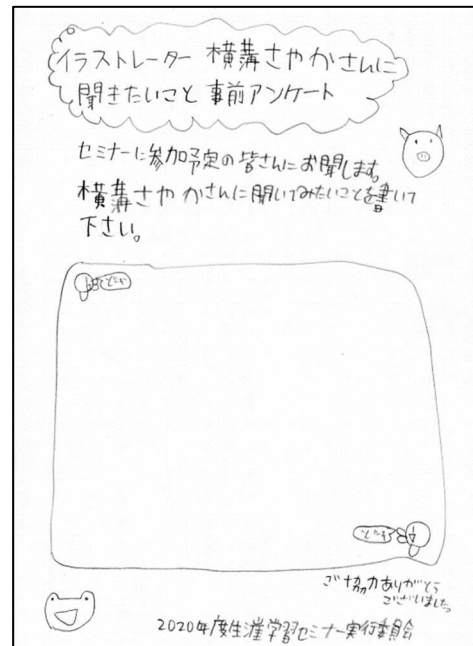 イラストレーター 横溝さやかさんに
聞きたいこと 事前アンケート
セミナーに参加予定の皆さんにお聞します。
横溝さやかさんに聞いてみたいことを書いて
下さい。
ご協力ありがとう
ございました。
2020年度生涯学習セミナー実行委員会